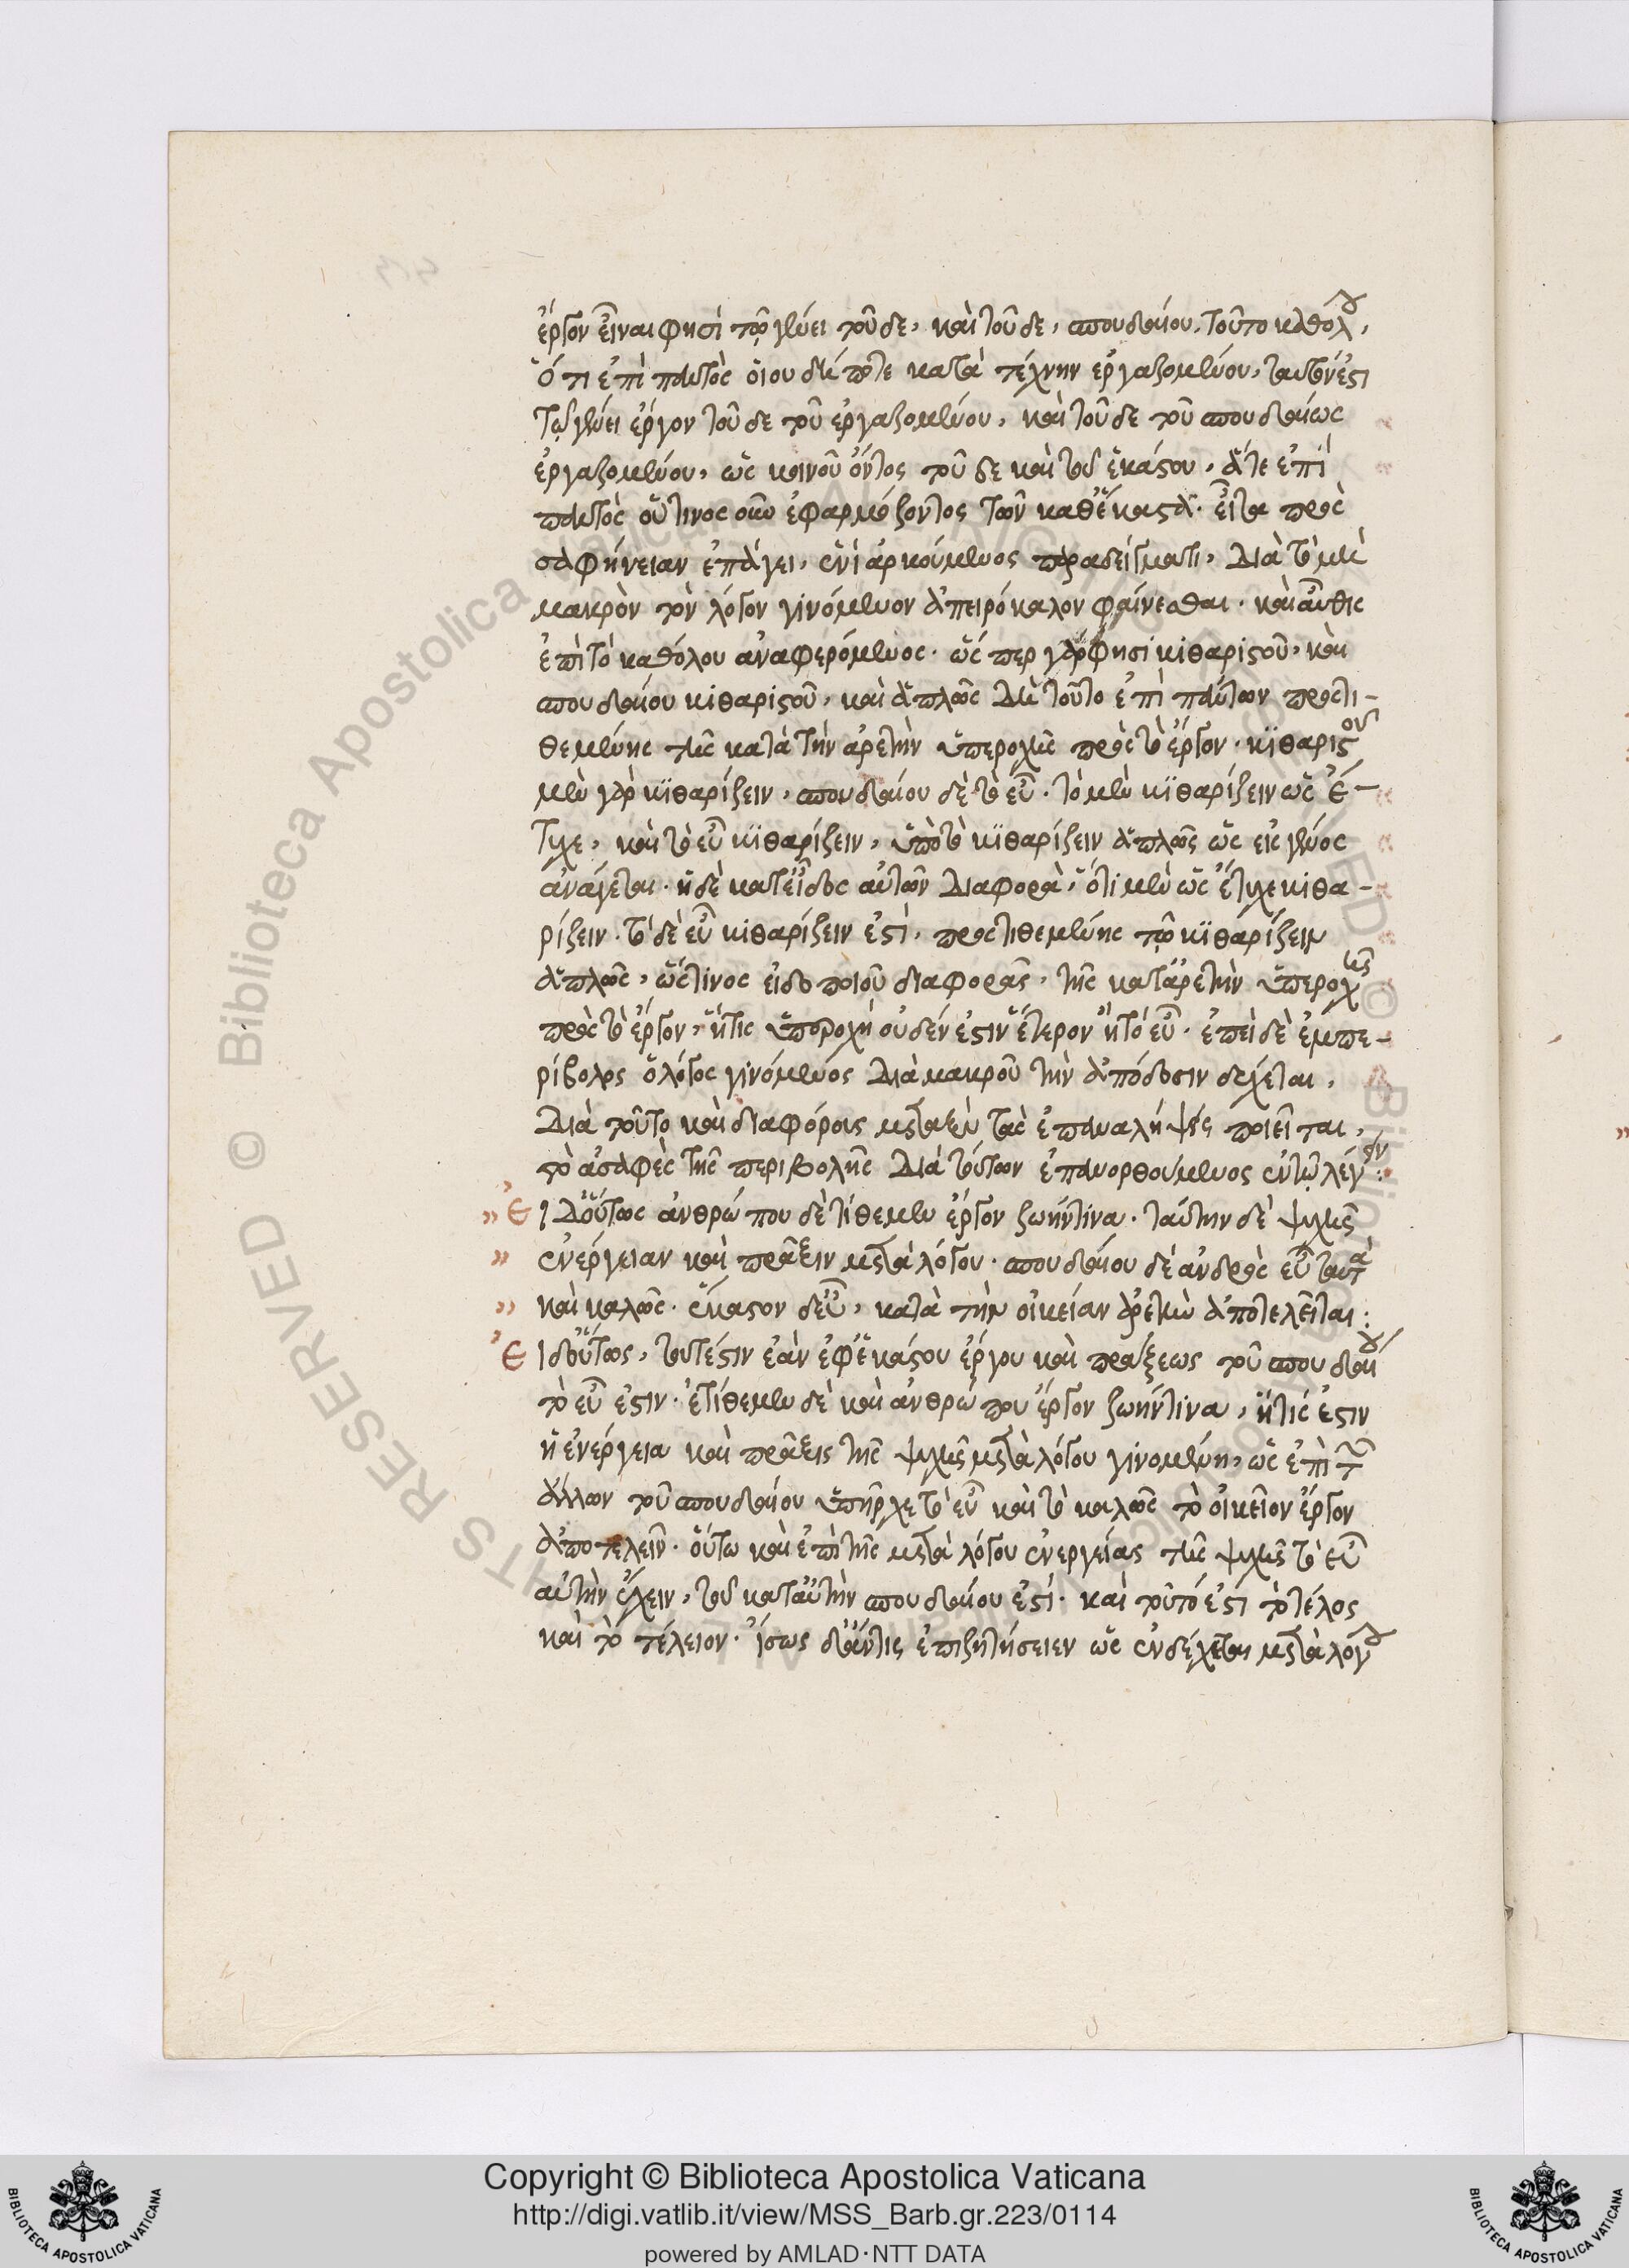 ἔργον εἶναί φησι τῷ γένει τοῦδε, καὶ τοῦδε, σπουδαίου. τοῦτο καθόλου,
ὅτι ἐπὶ παντὸς οἵου δήποτε κατὰ τέχνην ἐργαζομένου, ταυτόν ἐστι
τῷ γένει ἔργον τοῦδε τοῦ ἐργαζομένου, καὶ τοῦδε τοῦ σπουδαίως
ἐργαζομένου, ὡς κοινοῦ ὄντος τοῦδε καὶ τοῦ ἑκάστου, ἅτε ἐπὶ
παντὸς οὕτινος οὖν ἐφαρμόζοντος τῶν καθ' ἕκαστα. εἶτα πρὸς
σαφήνειαν ἐπάγει, ἑνὶ ἀρκούμενος παραδείγματι, διὰ τὸ μὴ
μακρὸν τὸν λόγον γινόμενον ἀπειρόκαλον φαίνεσθαι. καὶ αὖθις
ἐπὶ τὸ καθόλου ἀναφερόμενος. ὥσπερ γάρ φησι κιθαριστοῦ, καὶ
σπουδαίου κιθαριστοῦ, καὶ ἁπλῶς δὴ τοῦτο ἐπὶ πάντων προστι-
θεμένης τῆς κατὰ τὴν ἀρετὴν ὑπεροχῆς πρὸς τὸ ἔργον. κιθαριστοῦ
μὲν γὰρ κιθαρίζειν, σπουδαίου δὲ τὸ εὖ. τὸ μὲν κιθαρίζειν ὡς ἔ-
τυχε, καὶ τὸ εὖ κιθαρίζειν, ὑπὸ τὸ κιθαρίζειν ἁπλῶς ὡς εἰς γένος
ἀνάγεται. ἡ δὲ κατ' εἶδος αὐτῶν διαφορὰ, ὅτι μὲν ὡς ἔτυχε κιθα-
ρίζειν. τὸ δὲ εὖ κιθαρίζειν ἐστὶ, προστιθεμένης τῷ κιθαρίζειν
ἁπλῶς, ὥς τινος εἰδοποιοῦ διαφορᾶς, τῆς κατ' ἀρετὴν ὑπεροχῆς
πρὸς τὸ ἔργον, ἥτις ὑπεροχὴ οὐδέν ἐστιν ἕτερον ἢ τὸ εὖ. ἐπεὶ δὲ ἐμπε-
ρίβολος ὁ λόγος γινόμενος διὰ μακροῦ τὴν ἀπόδοσιν δέχεται,
διὰ τοῦτο καὶ διαφόροις μεταξὺ τὰς ἐπαναλήψεις ποιεῖται,
τὸ ἀσαφὲς τῆς περιβολῆς διὰ τούτων ἐπανορθούμενος ἐν τῷ λέγειν:
» Εἰ δ' οὕτως ἀνθρώπου δὲ τίθεμεν ἔργον ζωήν τινα. ταύτην δὲ ψυχῆς
» ἐνέργειαν καὶ πρᾶξιν μετὰ λόγου. σπουδαίου δὲ ἀνδρὸς εὖ ταῦτα
» καὶ καλῶς. ἕκαστον δ' εὖ, κατὰ τὴν οἰκείαν ἀρετὴν ἀποτελεῖται:
Εἰ δ' οὕτως, τουτέστιν ἐὰν ἐφ' ἑκάστου ἔργου καὶ πράξεως τοῦ σπουδαίου
τὸ εὖ ἐστιν. ἐτίθεμεν δὲ καὶ ἀνθρώπου ἔργον ζωήν τινα, ἥτις ἐστιν
ἡ ἐνέργεια καὶ πρᾶξις τῆς ψυχῆς μετὰ λόγου γινομένη, ὡς ἐπὶ τῶν
ἄλλων τοῦ σπουδαίου ὑπῆρχε τὸ εὖ καὶ τὸ καλῶς τὸ οἰκεῖον ἔργον
ἀποτελεῖν. οὕτω καὶ ἐπὶ τῆς μετὰ λόγου ἐνεργείας τῆς ψυχῆς τὸ εὖ
αὐτὴν ἔχειν, τοῦ κατ' αὐτὴν σπουδαίου ἐστί. καὶ τοῦτό ἐστι τὸ τέλος
καὶ τὸ τέλειον. ἴσως δ' ἄν τις ἐπιζητήσειεν ὡς ἐνδέχεται μετὰ λόγου
Copyright © Biblioteca Apostolica Vaticana
http://digi.vatlib.it/view/MSS_Barb.gr.223/0114
powered by AMLAD·NTT DATA